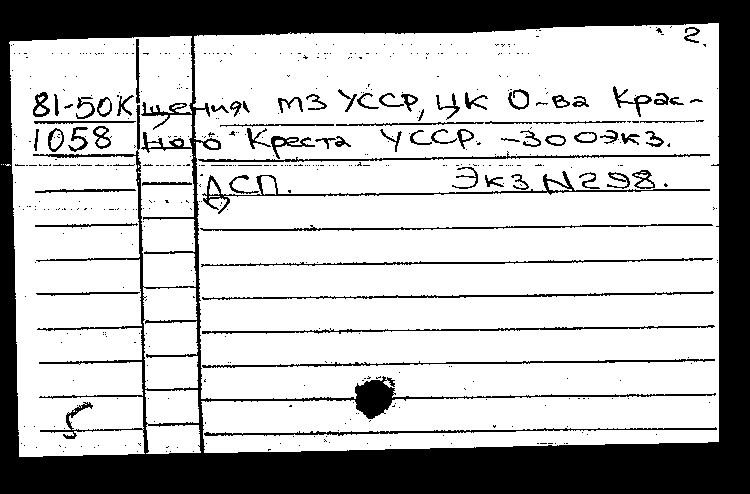 2.
81-50К щения МЗ УССР, ЦК О-ва Крас-
1058 ного Креста УССР. -300экз.
ДСП. Экз. N298.
5